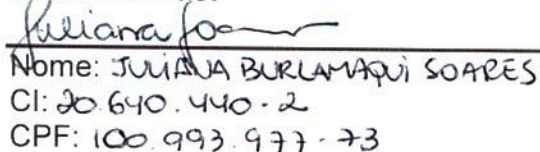 Juliana Soares
Nome: JULIANA BURLAMAQUI SOARES
CI: 20.640.440-2
CPF: 100.993.977-73